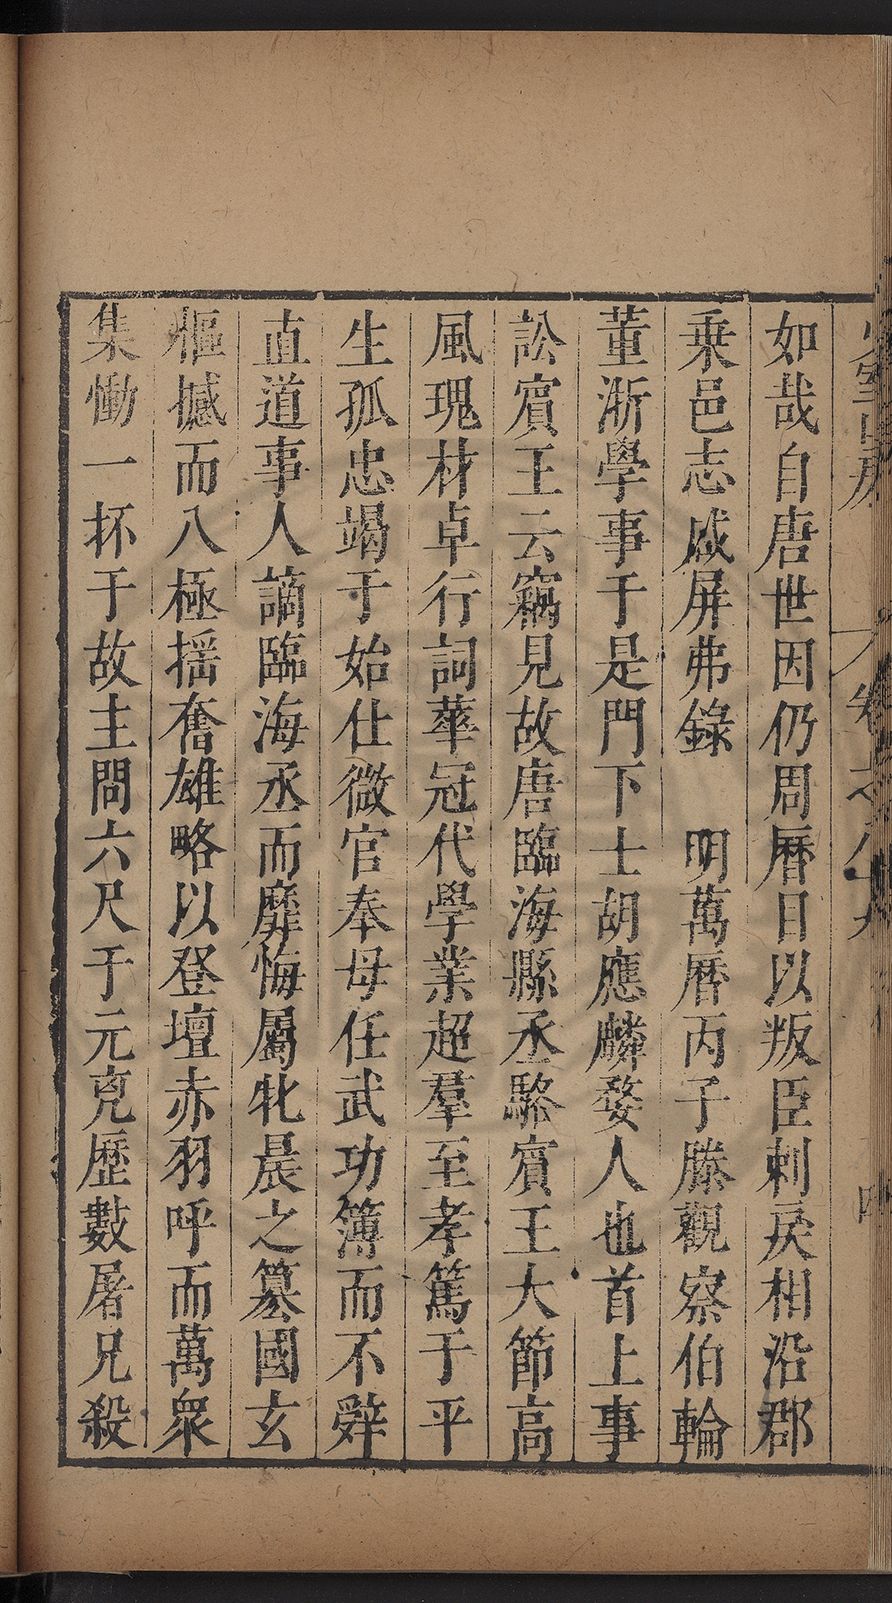 少室山房　卷之八十九　四
如哉自唐世因仍周曆目以叛臣刺戾相沿郡
乗邑志咸屏弗錄　明萬曆丙子滕觀察伯輪
董浙學事于是門下士胡應麟婺人也首上事
訟賔王云竊見故唐臨海縣丞駱賔王大節高
風瑰材卓行詞華冠代學業超羣至孝篤于平
生孤忠竭于始仕微官奉母任武功簿而不辤
直道事人謫臨海丞而靡悔屬牝晨之篡國玄
樞撼而八極揺奮雄略以登壇赤羽呼而萬衆
集慟一抔于故主問六尺于元兇歴數屠兄殺